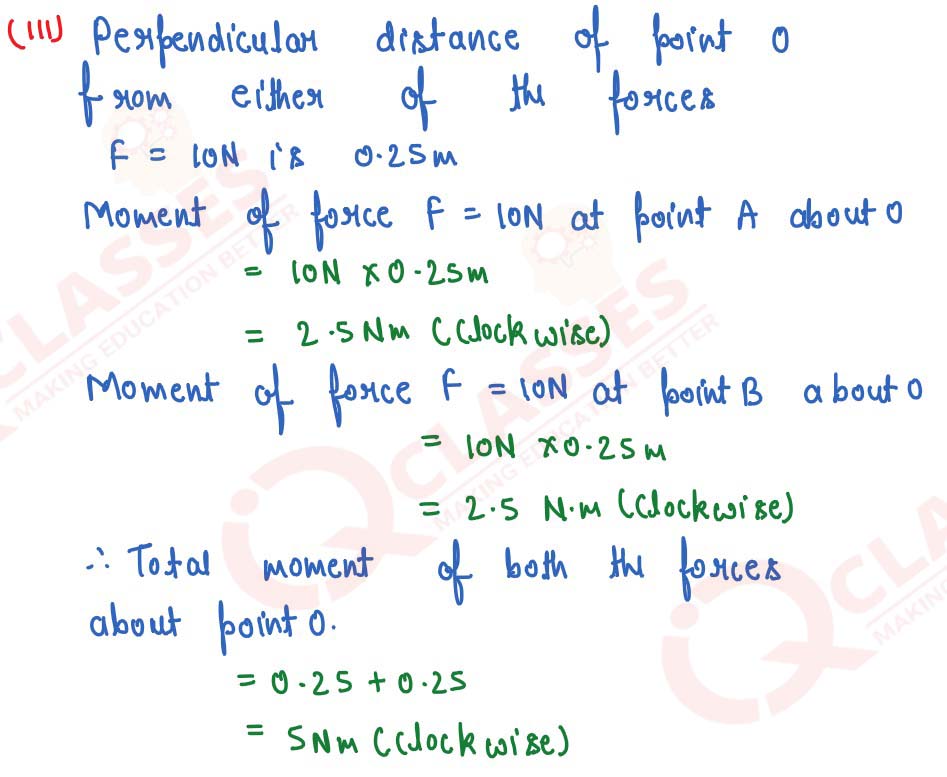 (III) Perpendicular distance of point O
from either of the forces
F = 10N is 0.25m
Moment of force F = 10N at point A about O
= 10N × 0.25m
= 2.5 Nm (Clockwise)
Moment of force F = 10N at point B about O
= 10N × 0.25m
= 2.5 N.m (Clockwise)
∴ Total moment of both the forces
about point O.
= 0.25 + 0.25
= 5Nm (Clockwise)
CLASSES
MAKING EDUCATION BETTER
IQ CLASSES
MAKING EDUCATION BETTER
IQ CLA
MAKING